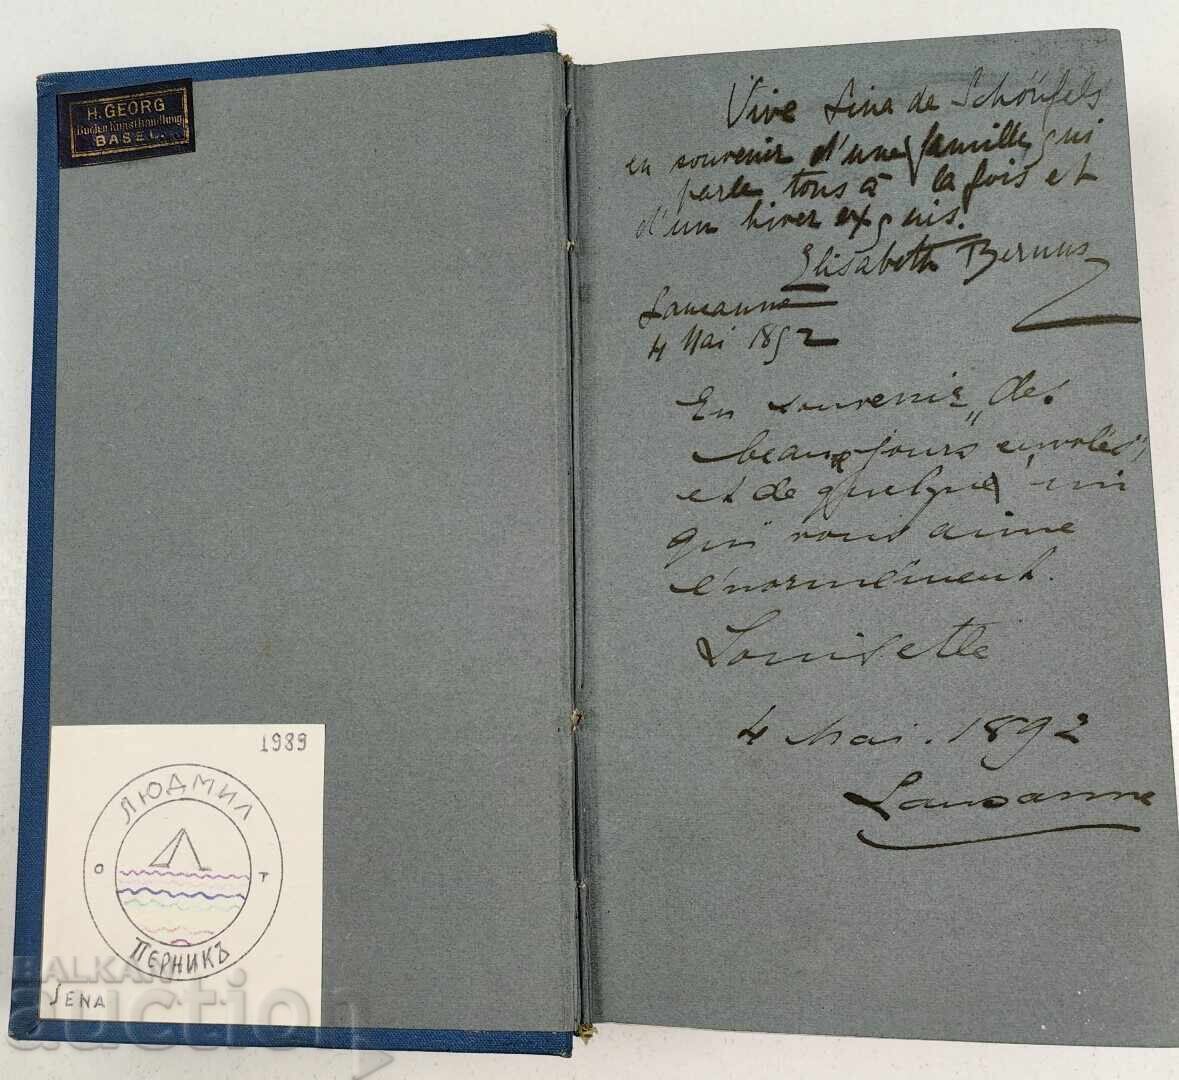 H. GEORG
Buch- en Kunsthandlung
BASEL.
1989
ЛЮДМИЛ
О Т
ПЕРНИКЪ
JENA
BALKAN
auction
Vive Lina de Schönfels
en souvenir d'une famille qui
parle tous à la fois et
d'un hiver exquis.
Elisabeth Bernus
Lausanne
4 Mai 1892
En souvenir "des
beaux jours envolés"
et de quelqu'un
qui vous aime
énormément.
Louisette
4 Mai. 1892
Lausanne